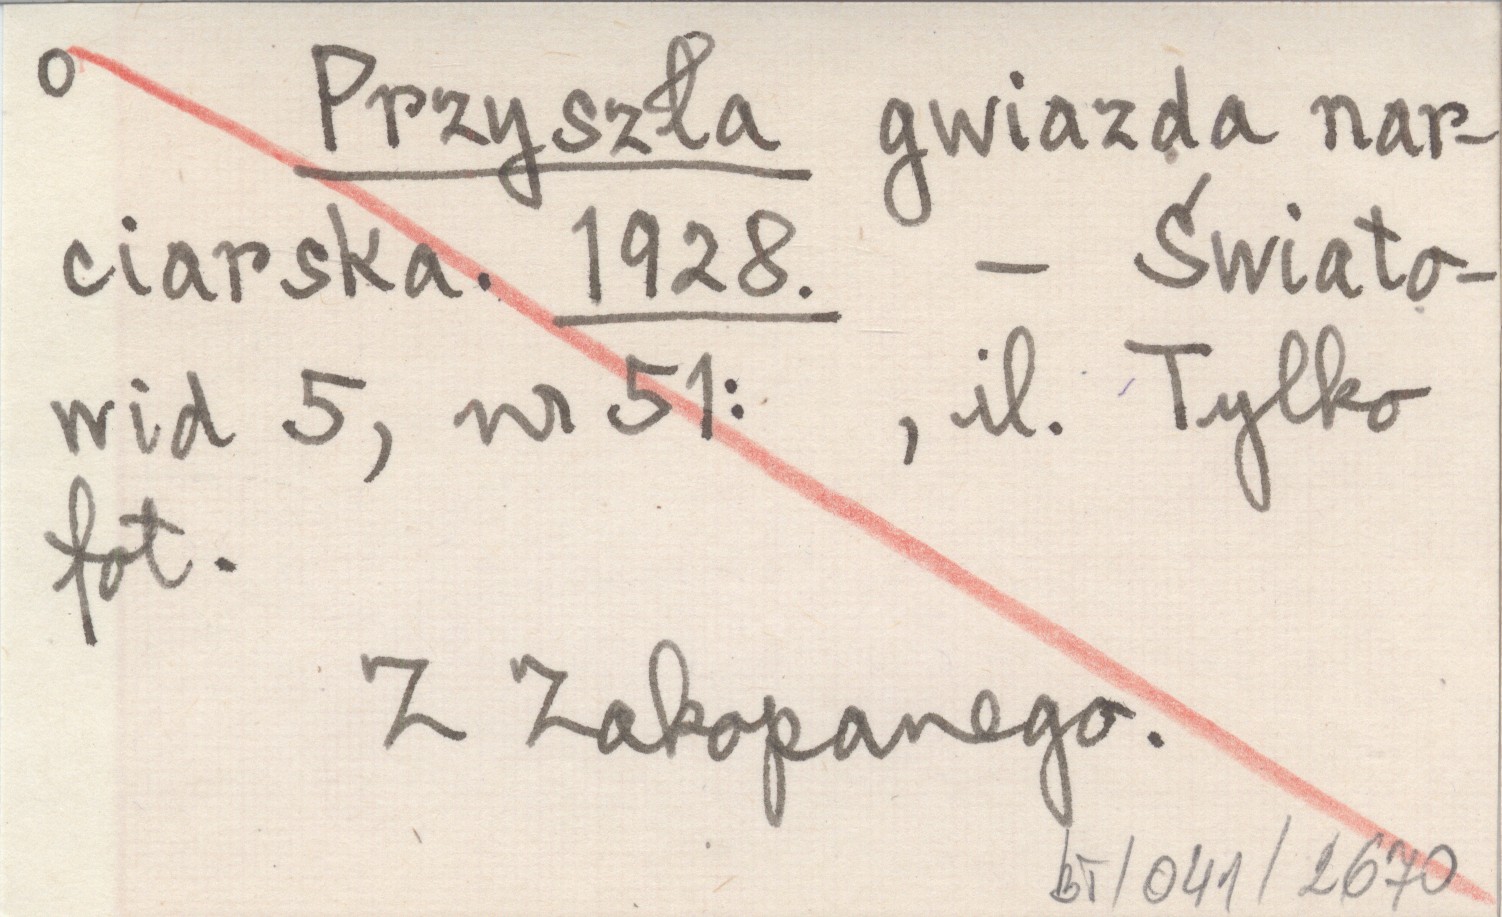 o Przyszła gwiazda nar-
ciarska. 1928. – Świato-
wid 5, nr 51: , il. Tylko
fot.
Z Zakopanego.
BT/041/2670